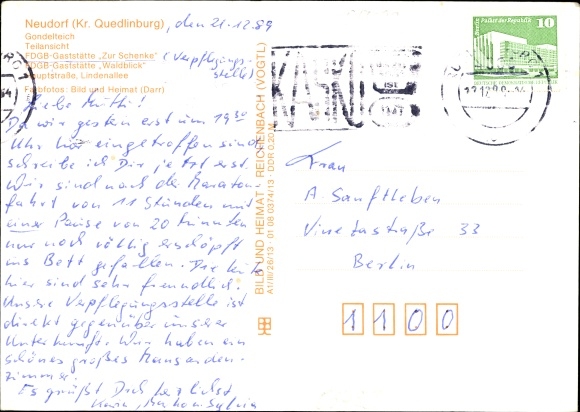 Neudorf (Kr. Quedlinburg), den 21.12.89
Gondelteich
Teilansicht
FDGB-Gaststätte „Zur Schenke" (Verpflegungs-
FDGB-Gaststätte „Waldblick" stelle)
Hauptstraße, Lindenallee
Farbfotos: Bild und Heimat (Darr)
Liebe Mutti!
Da wir gestern erst um 19³⁰
Uhr hier eingetroffen sind
schreibe ich Dir jetzt erst.
Wir sind nach der Maraton-
fahrt von 11 Stunden mit
einer Pause von 20 Minuten
nur noch völlig erschöpft
ins Bett gefallen. Die Leute
hier sind sehr freundlich.
Unsere Verpflegungsstelle ist
direkt gegenüber unserer
Unterkunft. Wir haben ein
schönes großes Mansarden-
zimmer.
Es grüßt Dich herzlichst
BILD UND HEIMAT REICHENBACH (VOGTL)
A1/III/26/13 01 08 0374/13 DDR 0,20 M
Palast der Republik
10
Frau
A. Sanftleben
Vinetastraße 33
Berlin
1100